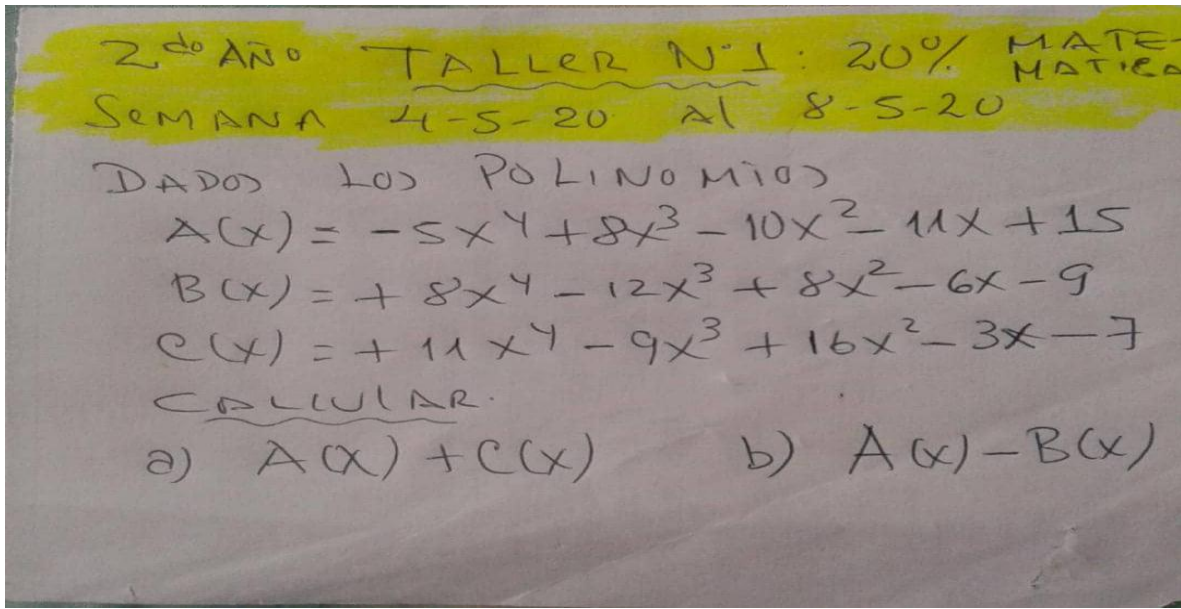 2do AÑO TALLER N°1: 20% MATE-
MATICA
SEMANA 4-5-20 Al 8-5-20
DADOS LOS POLINOMIOS
A(x) = -5x⁴ + 8x³ - 10x² - 11x + 15
B(x) = + 8x⁴ - 12x³ + 8x² - 6x - 9
C(x) = + 11x⁴ - 9x³ + 16x² - 3x - 7
CALCULAR.
a) A(x) + C(x) b) A(x) - B(x)